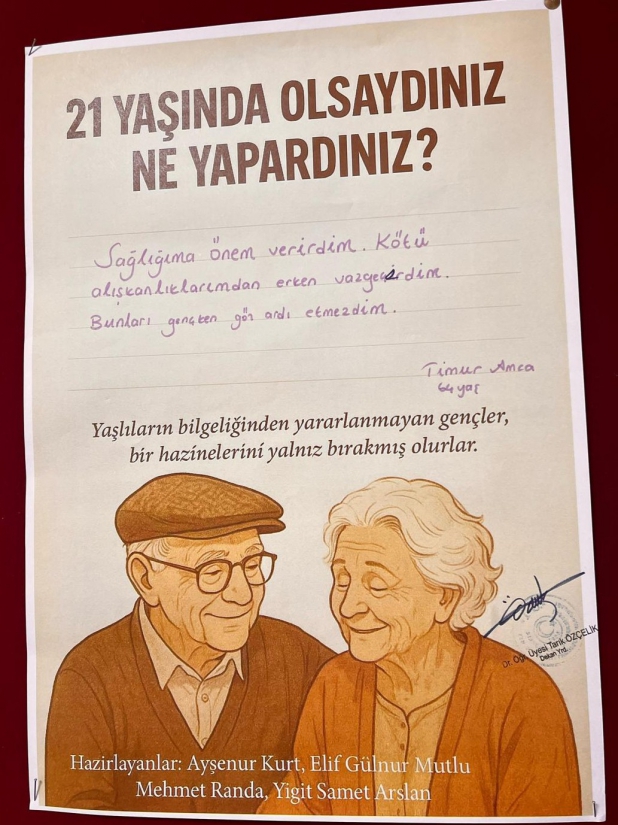 21 YAŞINDA OLSAYDINIZ
NE YAPARDINIZ?
Sağlığıma önem verirdim. Kötü
alışkanlıklarımdan erken vazgeçirdim.
Bunları gençken göz ardı etmezdim.
Timur Amca
64 yaş
Yaşlıların bilgeliğinden yararlanmayan gençler,
bir hazinelerini yalnız bırakmış olurlar.
Dr. Öğr. Üyesi Tarık ÖZÇELİK
Dekan Yrd.
Hazirlayanlar: Ayşenur Kurt, Elif Gülnur Mutlu
Mehmet Randa, Yigit Samet Arslan